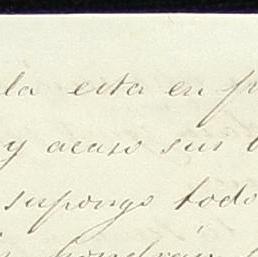 la esta en p
y acaso sus
supongo todo